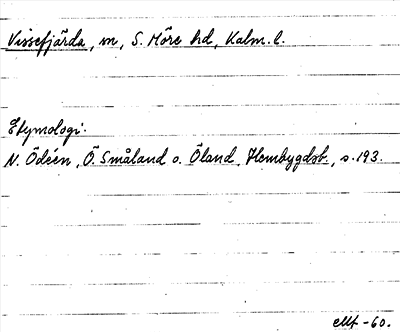 Vissefjärda, sn, S. Möre hd, Kalm. l.
Etymologi:
N. Ödéen, Ö. Småland o. Öland, Hembygdsb., s. 193.
-60.